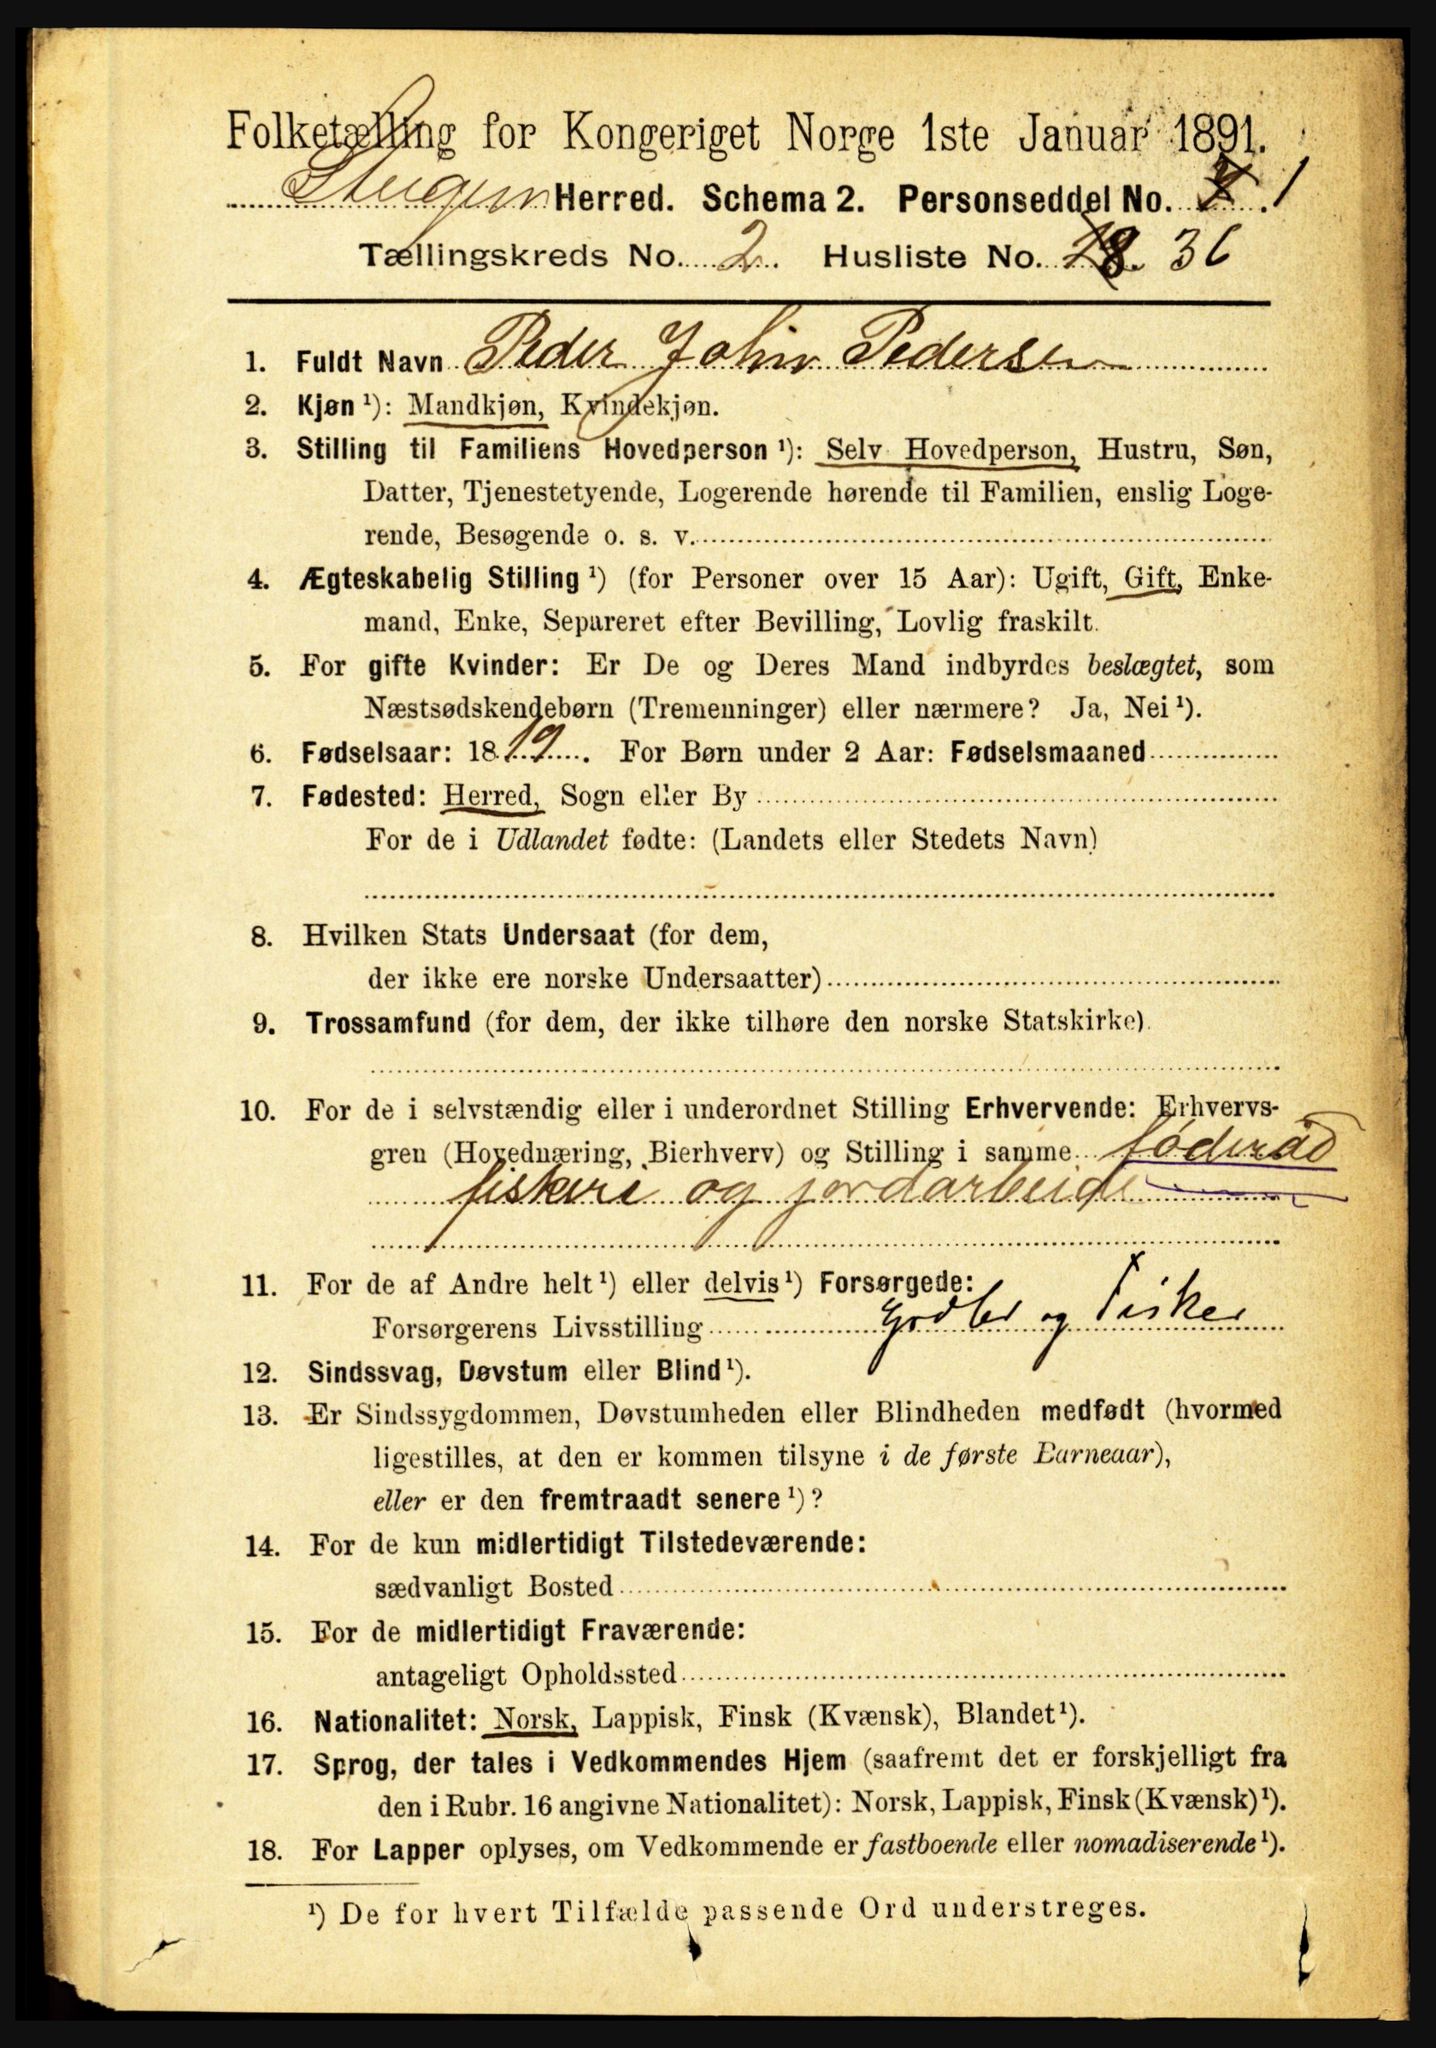 Folketælling for Kongeriget Norge 1ste Januar 1891.
Steigen Herred. Schema 2. Personseddel No. 1
Tællingskreds No. 2. Husliste No. 28. 36
1. Fuldt Navn Peder Johin Pedersen
2. Kjøn ¹): Mandkjøn, Kvindekjøn.
3. Stilling til Familiens Hovedperson ¹): Selv Hovedperson, Hustru, Søn,
Datter, Tjenestetyende, Logerende hørende til Familien, enslig Loge-
rende, Besøgende o. s. v.
4. Ægteskabelig Stilling ¹) (for Personer over 15 Aar): Ugift, Gift, Enke-
mand, Enke, Separeret efter Bevilling, Lovlig fraskilt.
5. For gifte Kvinder: Er De og Deres Mand indbyrdes beslægtet, som
Næstsødskendebørn (Tremenninger) eller nærmere? Ja, Nei ¹).
6. Fødselsaar: 1819. For Børn under 2 Aar: Fødselsmaaned
7. Fødested: Herred, Sogn eller By
For de i Udlandet fødte: (Landets eller Stedets Navn)
8. Hvilken Stats Undersaat (for dem,
der ikke ere norske Undersaatter)
9. Trossamfund (for dem, der ikke tilhøre den norske Statskirke).
10. For de i selvstændig eller i underordnet Stilling Erhvervende: Erhvervs-
gren (Hovednæring, Bierhverv) og Stilling i samme føderåd
fiskeri og jordarbeide
11. For de af Andre helt ¹) eller delvis ¹) Forsørgede:
Forsørgerens Livsstilling Grdbr og Fisker
12. Sindssvag, Døvstum eller Blind ¹).
13. Er Sindssygdommen, Døvstumheden eller Blindheden medfødt (hvormed
ligestilles, at den er kommen tilsyne i de første Barneaar),
eller er den fremtraadt senere ¹)?
14. For de kun midlertidigt Tilstedeværende:
sædvanligt Bosted
15. For de midlertidigt Fraværende:
antageligt Opholdssted
16. Nationalitet: Norsk, Lappisk, Finsk (Kvænsk), Blandet ¹).
17. Sprog, der tales i Vedkommendes Hjem (saafremt det er forskjelligt fra
den i Rubr. 16 angivne Nationalitet): Norsk, Lappisk, Finsk (Kvænsk) ¹).
18. For Lapper oplyses, om Vedkommende er fastboende eller nomadiserende ¹).
¹) De for hvert Tilfælde passende Ord understreges.